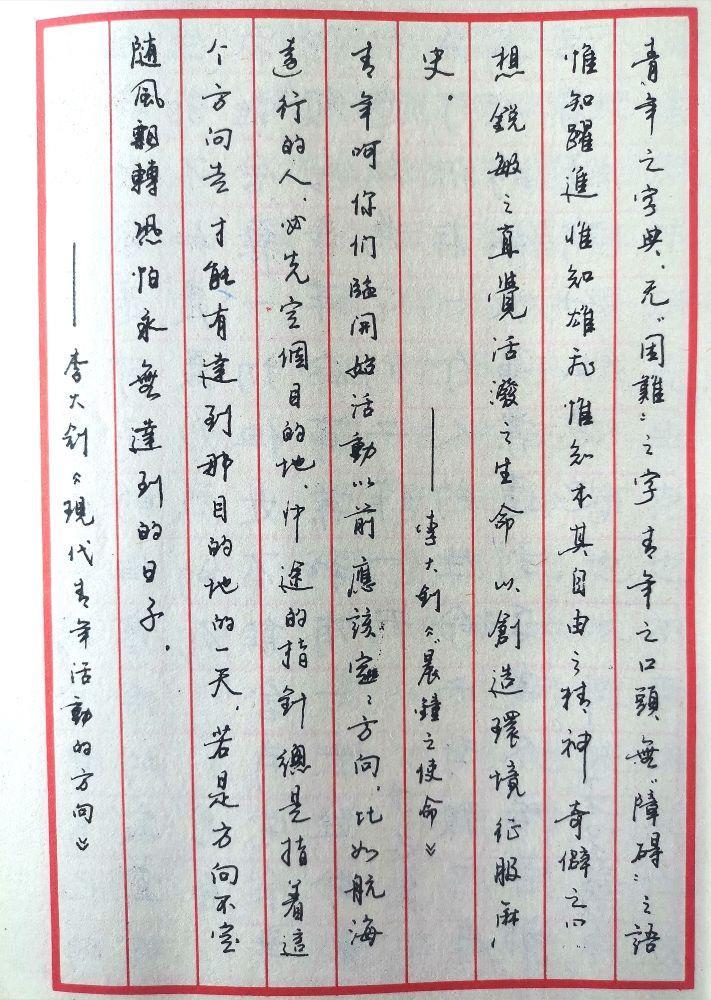 青年之字典，无“困難”之字青年之口頭無“障碍”之語
惟知躍進惟知雄飛惟知本其自由之精神奇僻之
想銳敏之直覺活潑之生命以創造環境征服
史。
——李大釗《“晨鐘”之使命》
青年呵你们臨開始活動以前應該定定方向，比如航海
遠行的人、必先定個目的地，中途的指針總是指着這
个方向走才能有達到那目的地的一天，若是方向不定
随風飘轉恐怕永無達到的日子。
——李大釗《現代青年活動的方向》